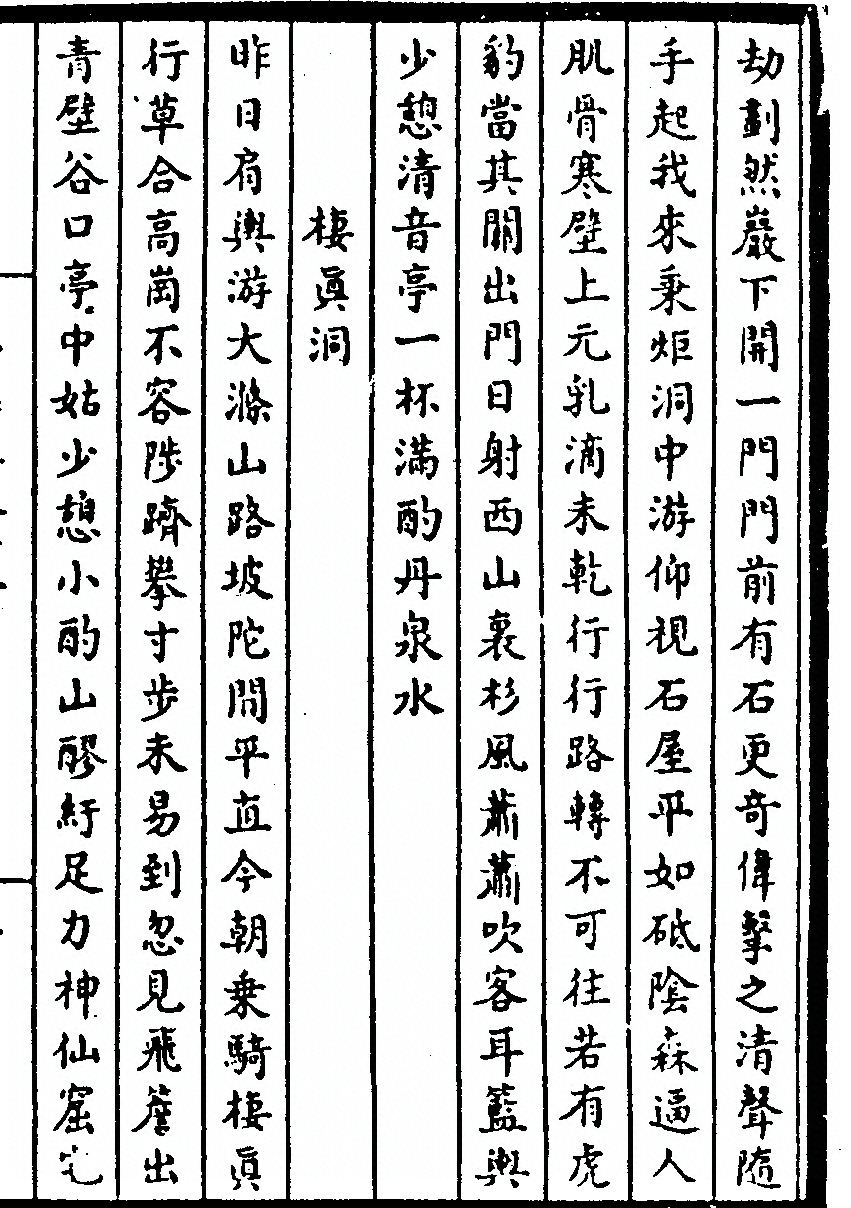 劫劃然巖下開一門門前有石更奇偉擊之清聲隨
手起我來秉炬洞中游仰視石屋平如砥陰森逼人
肌骨寒壁上元乳滴未乾行行路轉不可往若有虎
豹當其關出門日射西山裏杉風蕭蕭吹客耳籃輿
少憩清音亭一杯滿酌丹泉水
棲眞洞
昨日肩輿游大滌山路坡陀間平直今朝乗騎棲眞
行草合高崗不容陟躋攀寸步未易到忽見飛簷出
青壁谷口亭中姑少憩小酌山醪紓足力神仙窟宅